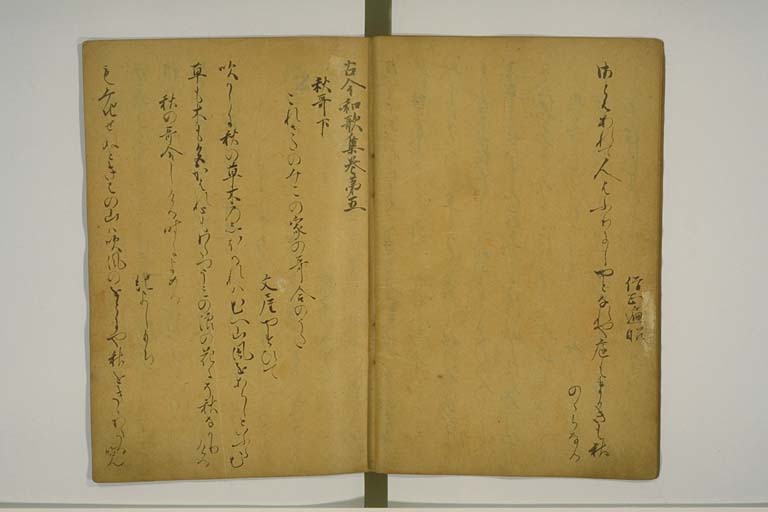 僧正遍昭
さとはあれて人はふりにしやとなれや庭もまかきも秋
のゝらなる
古今和歌集巻第五
秋哥下
これさたのみこの家の哥合のうた
文屋やすひて
吹からに秋の草木のしほるれはむへ山風をあらしといふらむ
草も木も色かはれともわたつうみの浪の花にそ秋なかりける
秋の哥合しける時によめる
紀よしもち
もみちせぬときはの山は吹風のをとにや秋をきゝわたる覧